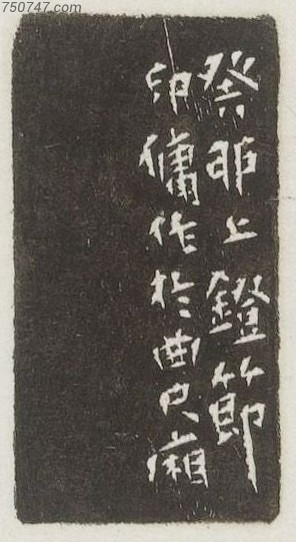 750747.com
癸丣上鐙節
印傭作於曲尺廂